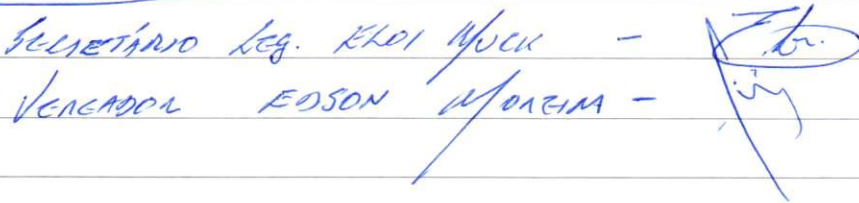 SECRETÁRIO LEG. ELOI MUCK -
VEREADOR EDSON MOREIRA -